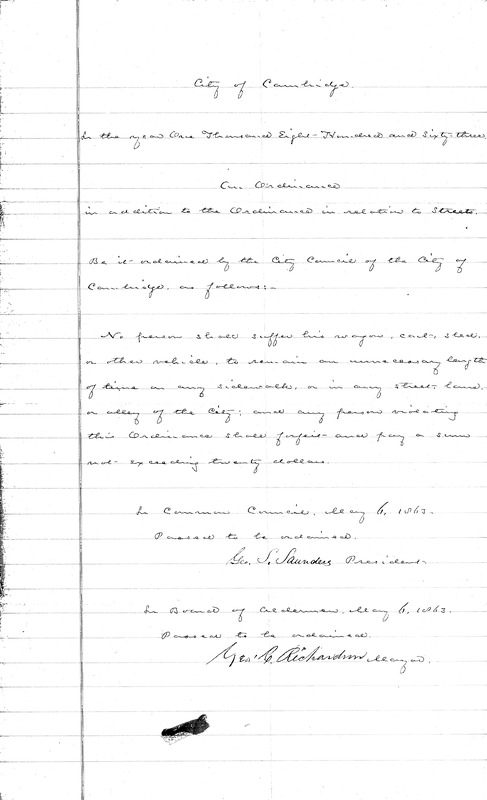 City of Cambridge.
In the year One Thousand Eight-Hundred and Sixty-three.
An Ordinance
in addition to the Ordinance in relation to Streets.
Be it ordained by the City Council of the City of
Cambridge, as follows:-
No person shall suffer his wagon, cart, sled,
or other vehicle, to remain an unnecessary length
of time on any sidewalk, or in any street, lane,
or alley of the City; and any person violating
this Ordinance shall forfeit and pay a sum
not exceeding twenty dollars.
In Common Council, May 6, 1863.
Passed to be ordained.
Geo. S. Saunders President.
In Board of Aldermen, May 6, 1863.
Passed to be ordained.
Geo. C. Richardson Mayor.